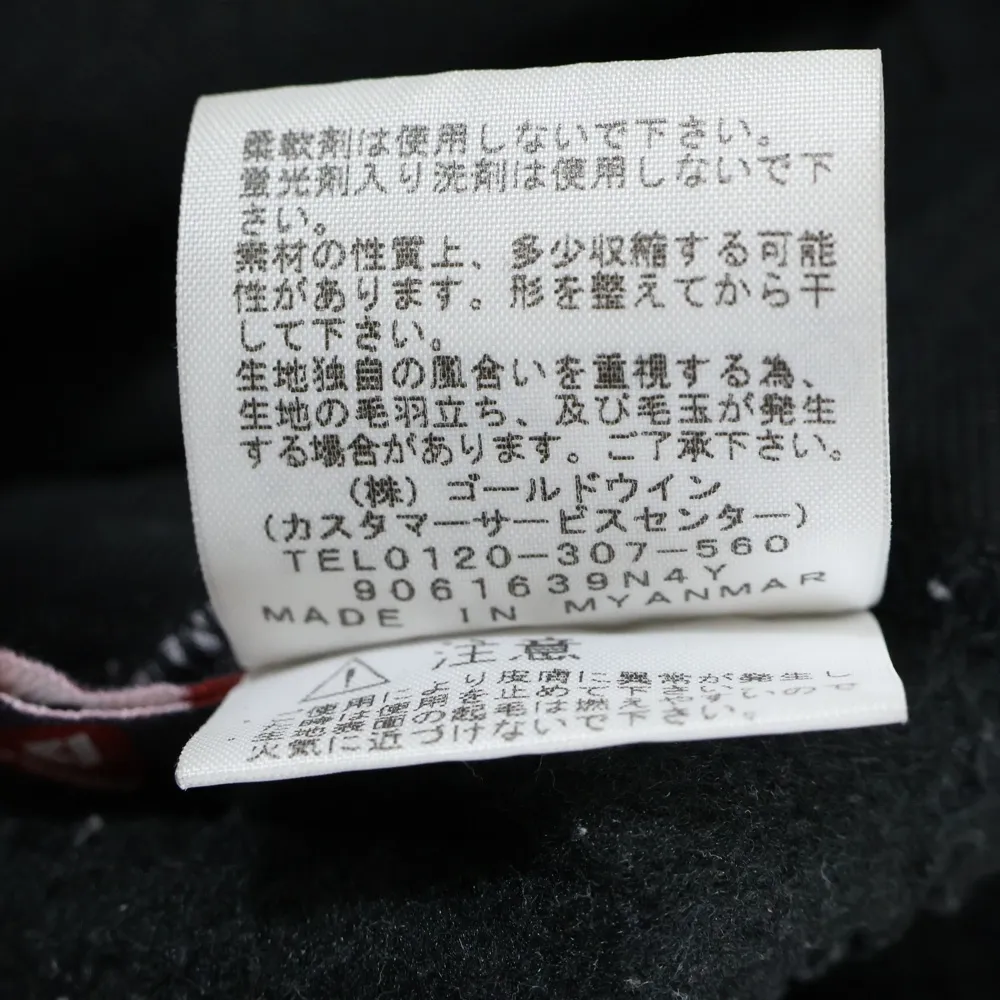 柔軟剤は使用しないで下さい。
蛍光剤入り洗剤は使用しないで下
さい。
素材の性質上、多少収縮する可能
性があります。形を整えてから干
して下さい。
生地独自の風合いを重視する為、
生地の毛羽立ち、及び毛玉が発生
する場合があります。ご了承下さい。
(株) ゴールドウイン
(カスタマーサービスセンター)
TEL0120-307-560
9061639N4Y
MADE IN MYANMAR
注意
使用により皮膚に異常が発生し
時は使用を止めて下さい。
生地表面の起毛は燃えやすいので
火気に近づけないで下さい。